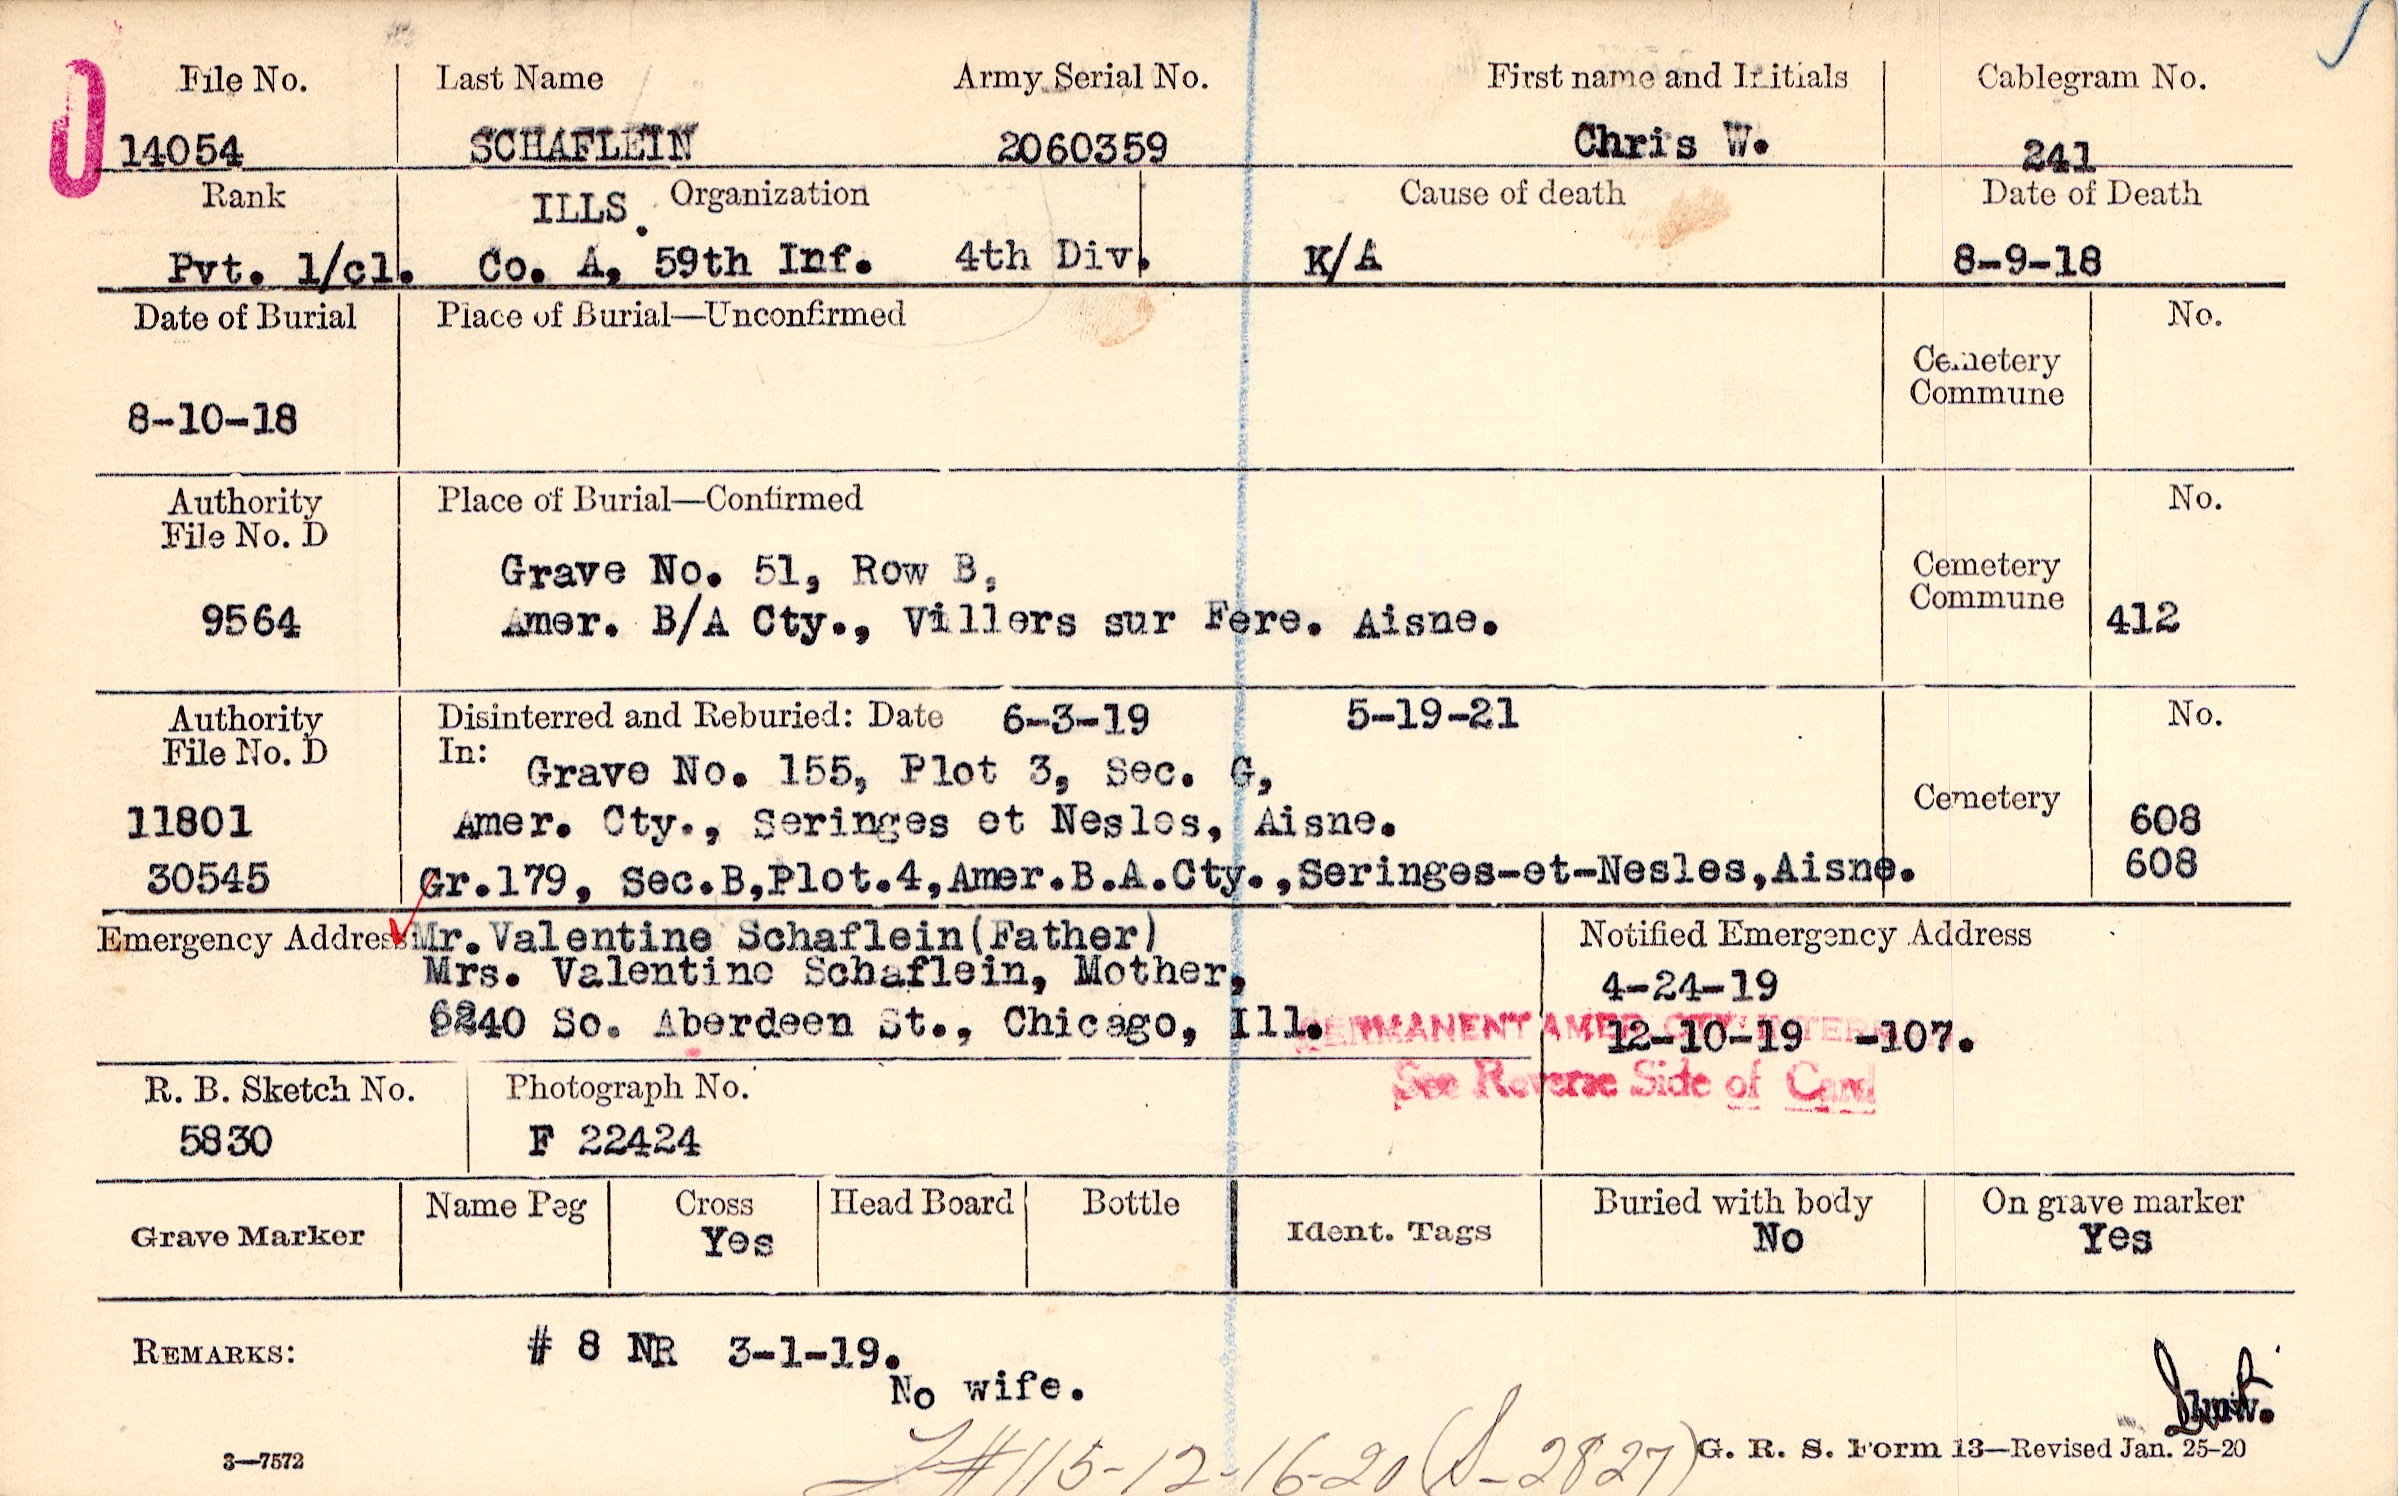 File No. Last Name Army Serial No. First name and Initials Cablegram No.
14054 SCHAFLEIN 2060359 Chris W. 241
Rank ILLS. Organization Cause of death Date of Death
Pvt. 1/cl. Co. A, 59th Inf. 4th Div. K/A 8-9-18
Date of Burial Place of Burial—Unconfirmed No.
Cemetery
Commune
8-10-18
Authority Place of Burial—Confirmed No.
File No. D
Grave No. 51, Row B, Cemetery
Commune
9564 Amer. B/A Cty., Villers sur Fere. Aisne. 412
Authority Disinterred and Reburied: Date 6-3-19 5-19-21 No.
File No. D In:
Grave No. 155, Plot 3, Sec. G,
Cemetery
11801 Amer. Cty., Seringes et Nesles, Aisne. 608
30545 Gr.179, Sec.B,Plot.4,Amer.B.A.Cty.,Seringes-et-Nesles,Aisne. 608
Emergency Address: Mr.Valentine Schaflein(Father) Notified Emergency Address
Mrs. Valentine Schaflein, Mother, 4-24-19
6240 So. Aberdeen St., Chicago, Ill. PERMANENT AMER. CTY. 12-10-19 -107.
See Reverse Side of Card
R. B. Sketch No. Photograph No.
5830 F 22424
Grave Marker Name Peg Cross Head Board Bottle Ident. Tags Buried with body On grave marker
Yes No Yes
REMARKS: # 8 NR 3-1-19.
No wife.
#115-12-16-20 (S-2827)
3—7572 G. R. S. Form 13—Revised Jan. 25-20